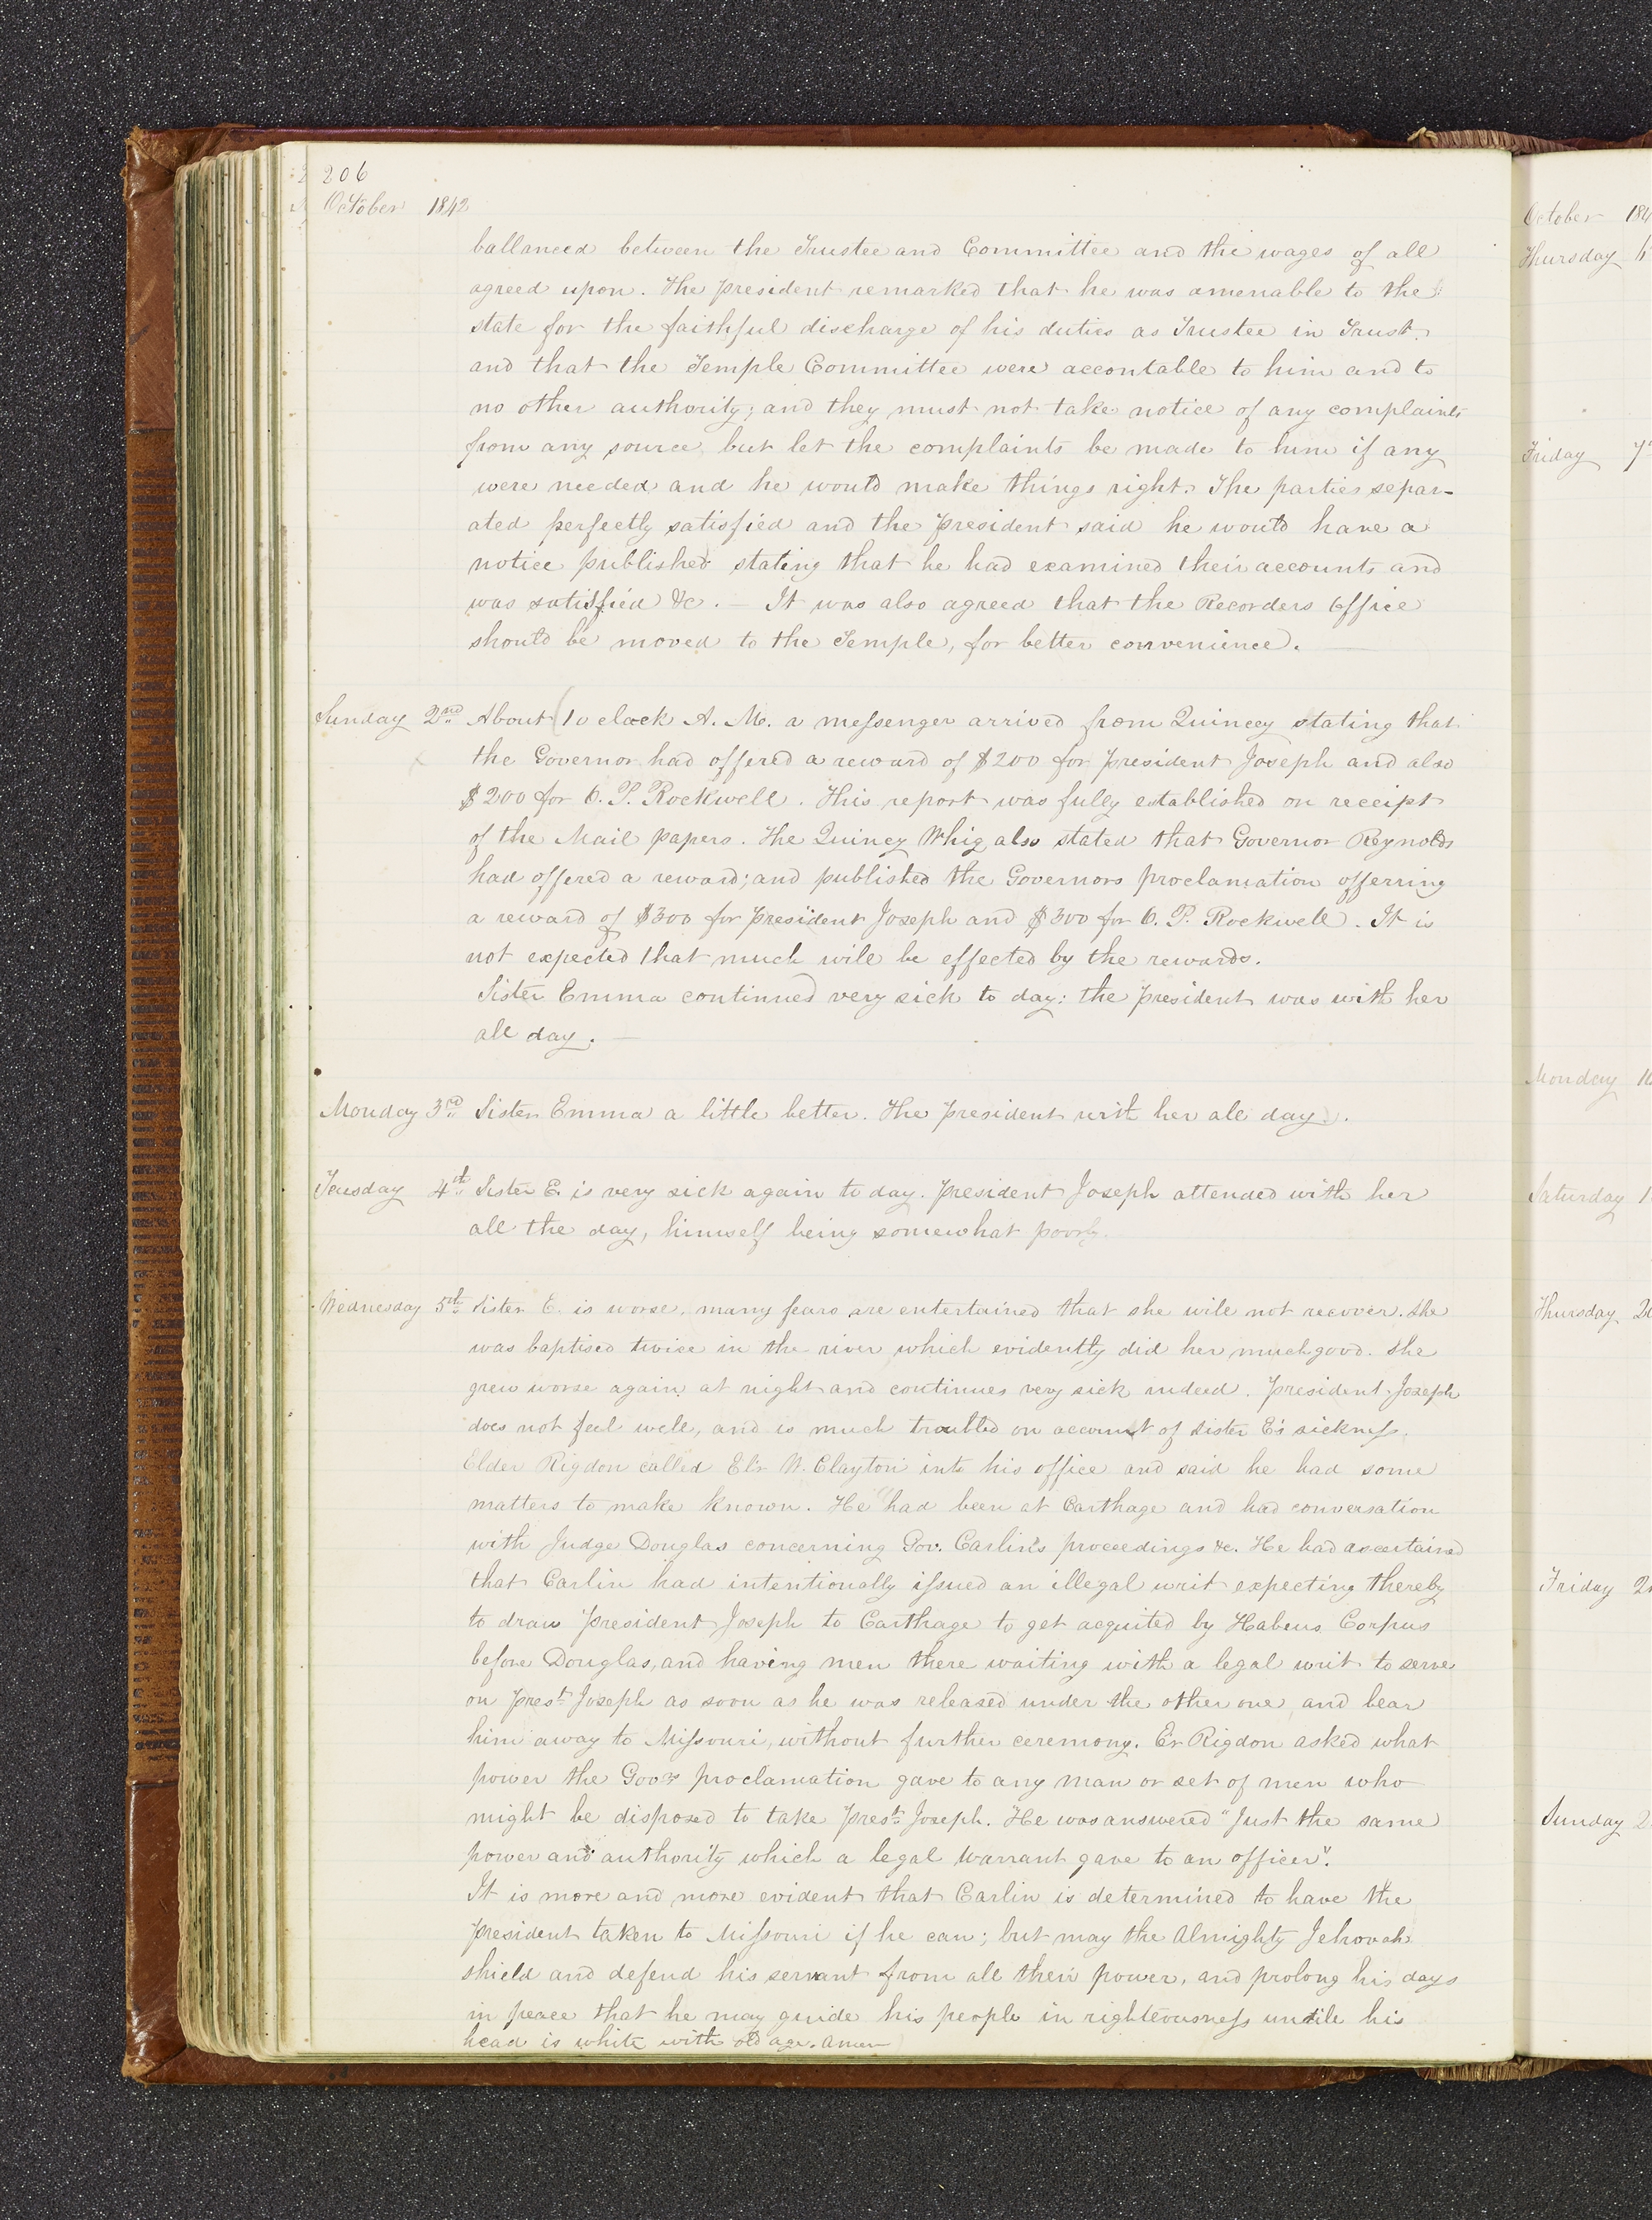 206
October 1842
ballanced between the Trustee and Committee and the wages of all
agreed upon. The president remarked that he was amenable to the
state for the faithful discharge of his duties as Trustee in Trust.
and that the Temple Committee were accontable to him and to
no other authority; and they must not take notice of any complaints
from any source but let the complaints be made to him if any
were needed and he would make things right. The parties separ-
ated perfectly satisfied and the president said he would have a
notice published stating that he had examined their accounts and
was satisfied &c. — It was also agreed that the Recorders office
should be moved to the Temple, for better convenience. —
Sunday 2nd About 10 clock A. M. a messenger arrived from Quincey stating that
the Governor had offered a reward of $200 for president Joseph and also
$200 for O. P. Rockwell. This report was fully established on receipt
of the Mail papers. The Quincy Whig also stated that Governor Reynolds
had offered a reward; and published the Governors proclamation offerring
a reward of $300 for president Joseph and $300 for O. P. Rockwell. It is
not expected that much will be effected by the rewards.
Sister Emma continued very sick to day: the president was with her
all day. —
Monday 3rd Sister Emma a little better. The president with her all day.
Teusday 4th Sister E. is very sick again to day. President Joseph attended with her
all the day, himself being somewhat poorly.
Wednesday 5th Sister E. is worse, many fears are entertained that she will not recover. She
was baptised twice in the river which evidently did her much good. She
grew worse again at night and continues very sick indeed. President Joseph
does not feel well, and is much troubled on account of Sister E's sickness.
Elder Rigdon called Elr W. Clayton into his office and said he had some
matters to make known. He had been at Carthage and had conversation
with Judge Douglas concerning Gov. Carlin's proceedings &c. He had ascertained
that Carlin had intentionally issued an illegal writ expecting thereby
to draw president Joseph to Carthage to get acquited by Habeus Corpus
before Douglas, and having men there waiting with a legal writ to serve
on Prest. Joseph as soon as he was released under the other one and bear
him away to Missouri, without further ceremony. Er Rigdon asked what
power the Govrs proclamation gave to any man or set of men who
might be disposed to take Prest. Joseph. He was answered "Just the same
power and authority which a legal warrant gave to an officer".
It is more and more evident that Carlin is determined to have the
president taken to Missouri if he can; but may the Almighty Jehovah
shield and defend his servant from all their power, and prolong his days
in peace that he may guide his people in righteousness untile his
head is white with old age. Amen
October 184
Thursday
Friday 7
Monday 10
Saturday 1
Thursday 20
Friday 2
Sunday 2